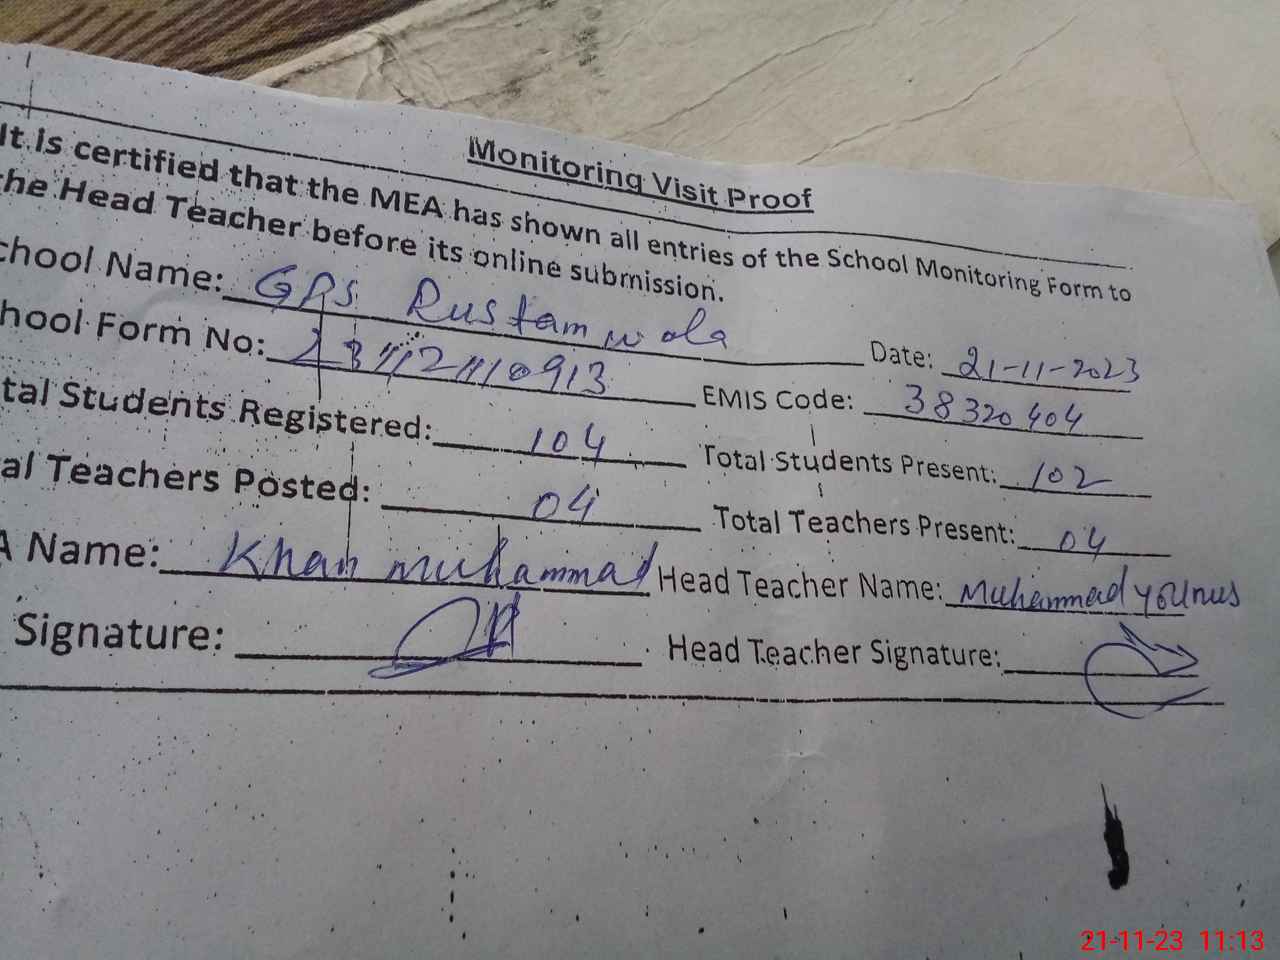 Monitoring Visit Proof
It is certified that the MEA has shown all entries of the School Monitoring Form to
the Head Teacher before its online submission.
chool Name: GPS Rustam wala Date: 21-11-2023
hool Form No: EMIS Code: 38320404
tal Students Registered: 104 Total Students Present: 102
al Teachers Posted: 04 Total Teachers Present: 04
A Name: Khan muhammad Head Teacher Name: Muhammad younus
Signature: Head Teacher Signature:
21-11-23 11:13